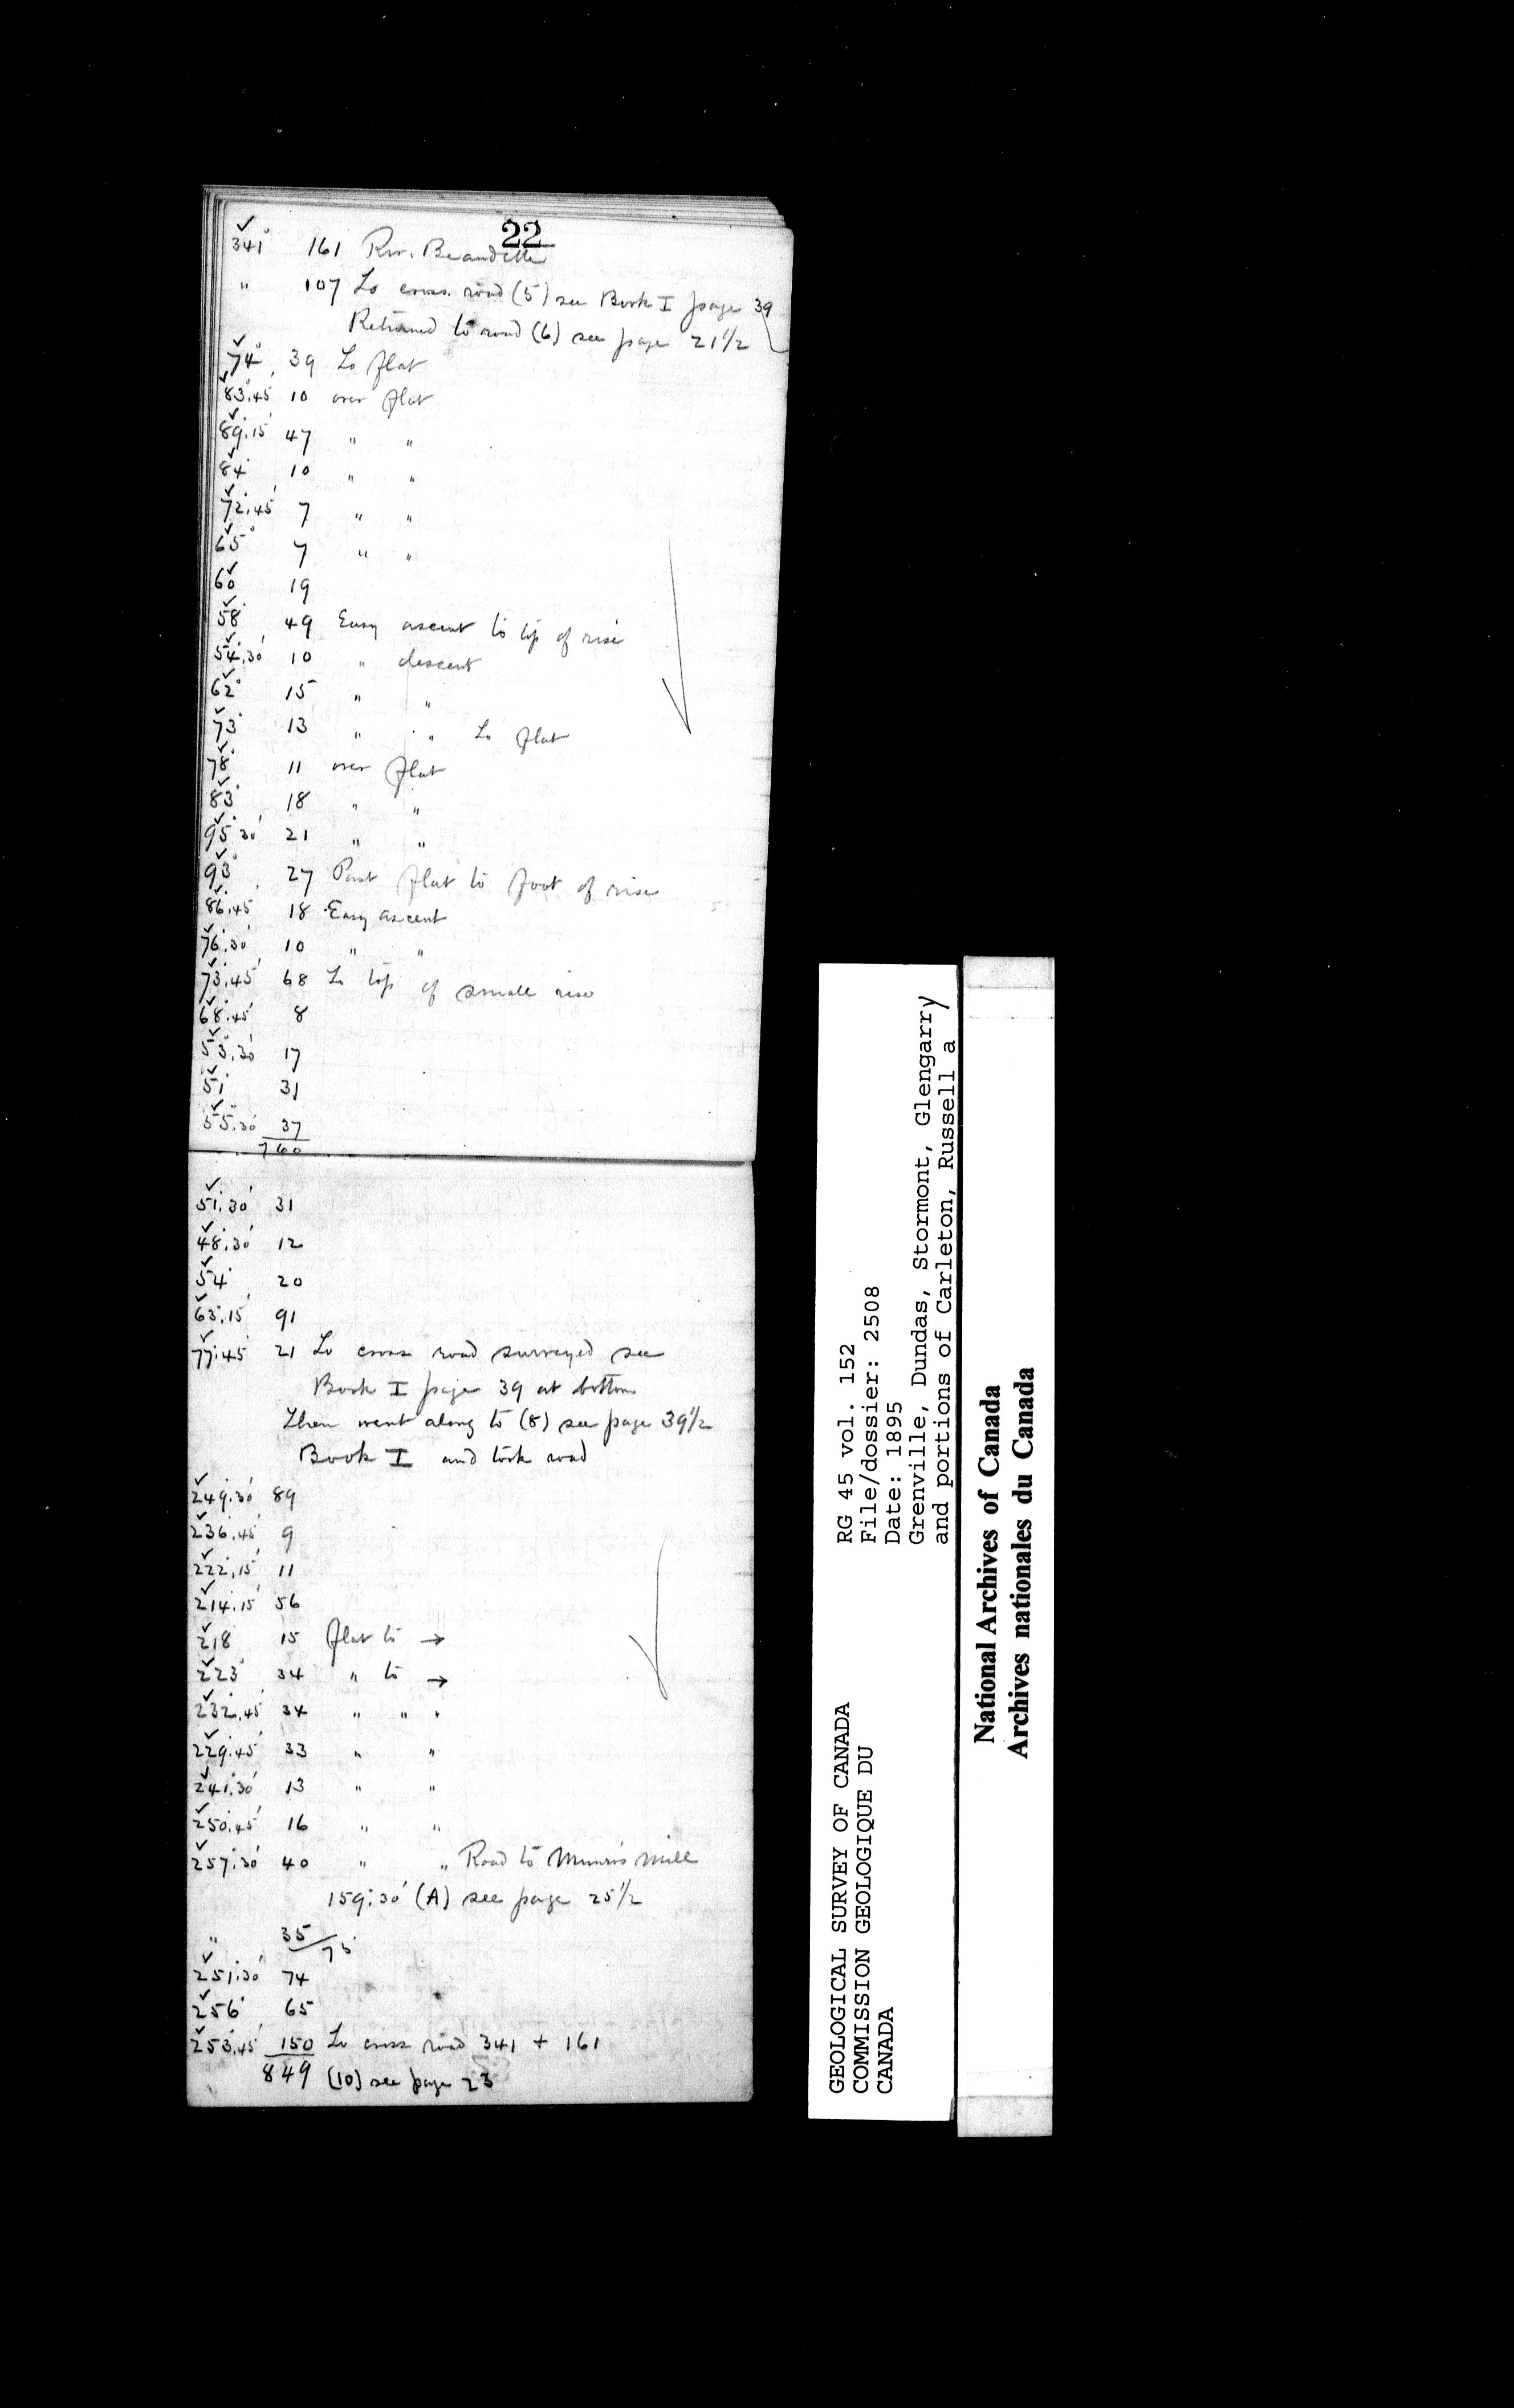 22
341° 161 Riv. Beaudette
" 107 To cross road (5) see Book I page 39
Returned to road (6) see page 21½
74° 39 To flat
83°.45' 10 over flat
89°.15' 47 " "
84° 10 " "
72°.45' 7 " "
65° 7 " "
60° 19
58° 49 Easy ascent to top of rise
54°.30' 10 " descent
62° 15 " "
73° 13 " " To flat
78° 11 over flat
83° 18 " "
95°30' 21 " "
93° 27 Past flat to foot of rise
86°.45' 18 Easy ascent
76°.30' 10 " "
73°.45' 68 To top of small rise
68°.45' 8
53°.30' 17
51° 31
55°.30' 37
760
51°.30' 31
48°.30' 12
54° 20
63°.15' 91
77°.45' 21 To cross road surveyed see
Book I page 39 at bottom
Then went along to (8) see page 39½
Book I and took road
249°.30' 89
236°.45' 9
222°.15' 11
214°.15' 56
218° 15 flat to →
223° 34 " to →
232°.45' 34 " " "
229°.45' 33 " "
241°.30' 13 " "
250°.45' 16 " "
257°.30' 40 " " Road to Munro's Mill
159°.30' (A) see page 25½
" 35/75
251°.30' 74
256° 65
253°.45' 150 To cross road 341 + 161
849 (10) see page 23
GEOLOGICAL SURVEY OF CANADA
COMMISSION GEOLOGIQUE DU
CANADA
RG 45 vol. 152
File/dossier: 2508
Date: 1895
Grenville, Dundas, Stormont, Glengarry
and portions of Carleton, Russell a
National Archives of Canada
Archives nationales du Canada